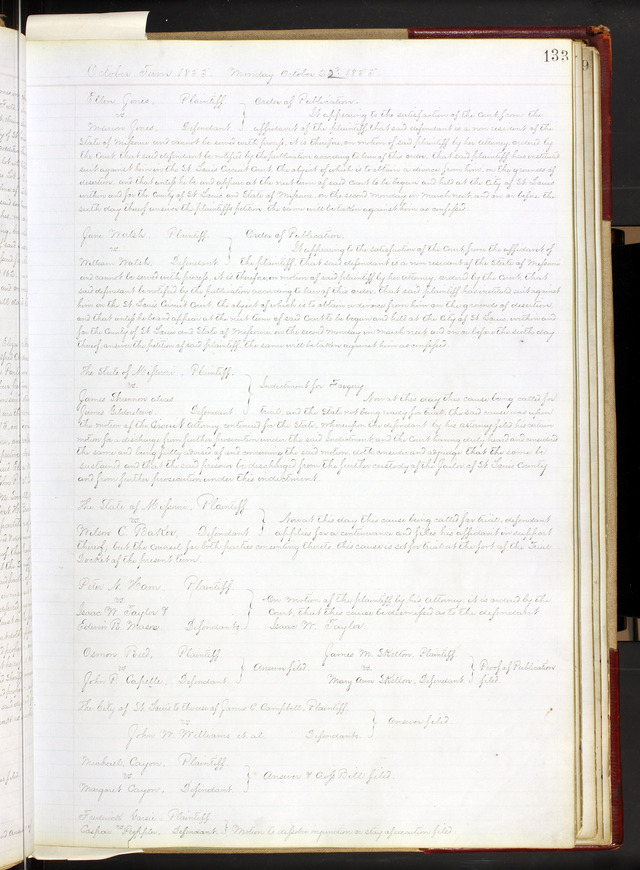 133
October Term 1855. Monday October 22nd 1855
Ellen Jones. Plaintiff. Order of Publication.
vs. It appearing to the satisfaction of the Court from the
Marion Jones. Defendant. affidavit of the plaintiff that said defendant is a non resident of the
State of Missouri and cannot be served with process. it is therefore on motion of said plaintiff by her attorney ordered by
the Court that said defendant be notified by the publication according to law of this order. that said plaintiff has instituted
suit against him in the St. Louis Circuit Court the object of which is to obtain a divorce from him, on the grounds of
desertion, and that unless he be and appear at the next term of said Court to be begun and held at the City of St. Louis
within and for the County of St. Louis and State of Missouri, on the second monday in march next, and on or before the
sixth day thereof answer the plaintiff's petition the same will be taken against him as confessed.
Jane Walsh. Plaintiff Order of Publication.
vs. It appearing to the satisfaction of the Court from the affidavit of
William Walsh. Defendant. the plaintiff, that said defendant is a non resident of the State of Missouri
and cannot be served with process. it is therefore on motion of said plaintiff by her attorney, ordered by the Court that
said defendant be notified by the publication according to law of this order. that said plaintiff has instituted suit against
him in the St. Louis Circuit Court the object of which is to obtain a divorce from him on the grounds of desertion,
and that unless he be and appear at the next term of said Court to be begun and held at the City of St. Louis, within and
for the County of St. Louis and State of Missouri, on the second monday in march next and on or before the sixth day
thereof, answer the petition of said plaintiff. the same will be taken against him as confessed.
The State of Missouri. Plaintiff.
vs. Indictment for Forgery
James Shannon alias Now at this day this cause being called for
James Gilderslove. Defendant. trial, and the State not being ready for trial, the said cause was upon
the motion of the Circuit Attorney, continued for the State, whereupon the defendant by his attorney filed his certain
motion for a discharge from further prosecution under the said Indictment, and the Court having duly heard and considered
the same and being fully advised of and concerning the said motion doth consider and adjudge that the same be
sustained and that the said prisoner be discharged from the further custody of the Jailor of St. Louis County
and from further prosecution under this indictment.
The State of Missouri, Plaintiff
vs. Now at this day this cause being called for trial, defendant
Wilson C. Baker, Defendant. applies for a continuance and files his affidavit in support
thereof, but the counsel for both parties consenting thereto, this cause is set for trial at the foot of the Trial
Docket of the present term.
Peter N. Ham. Plaintiff
vs. On motion of the plaintiff by his Attorney. it is ordered by the
Isaac W. Taylor & Court that this cause be dismissed as to the defendant
Edwin R. Mason Defendants. Isaac W. Taylor.
Osmon Reed. Plaintiff. James M. Skelton, Plaintiff
vs Answer filed. vs. Proof of Publication
John P. Capelle. Defendant. Mary Ann Skelton, Defendant filed.
The City of St. Louis to the use of James C. Campbell, Plaintiff.
vs Answer filed.
John W. Williams et al Defendants.
Michael Cayon. Plaintiff.
vs Answer & Cross Bill filed.
Margaret Cayon, Defendant
Frederick Plaintiff
Caspar vs Defendant. Motion to dissolve injunction or stay of execution filed.